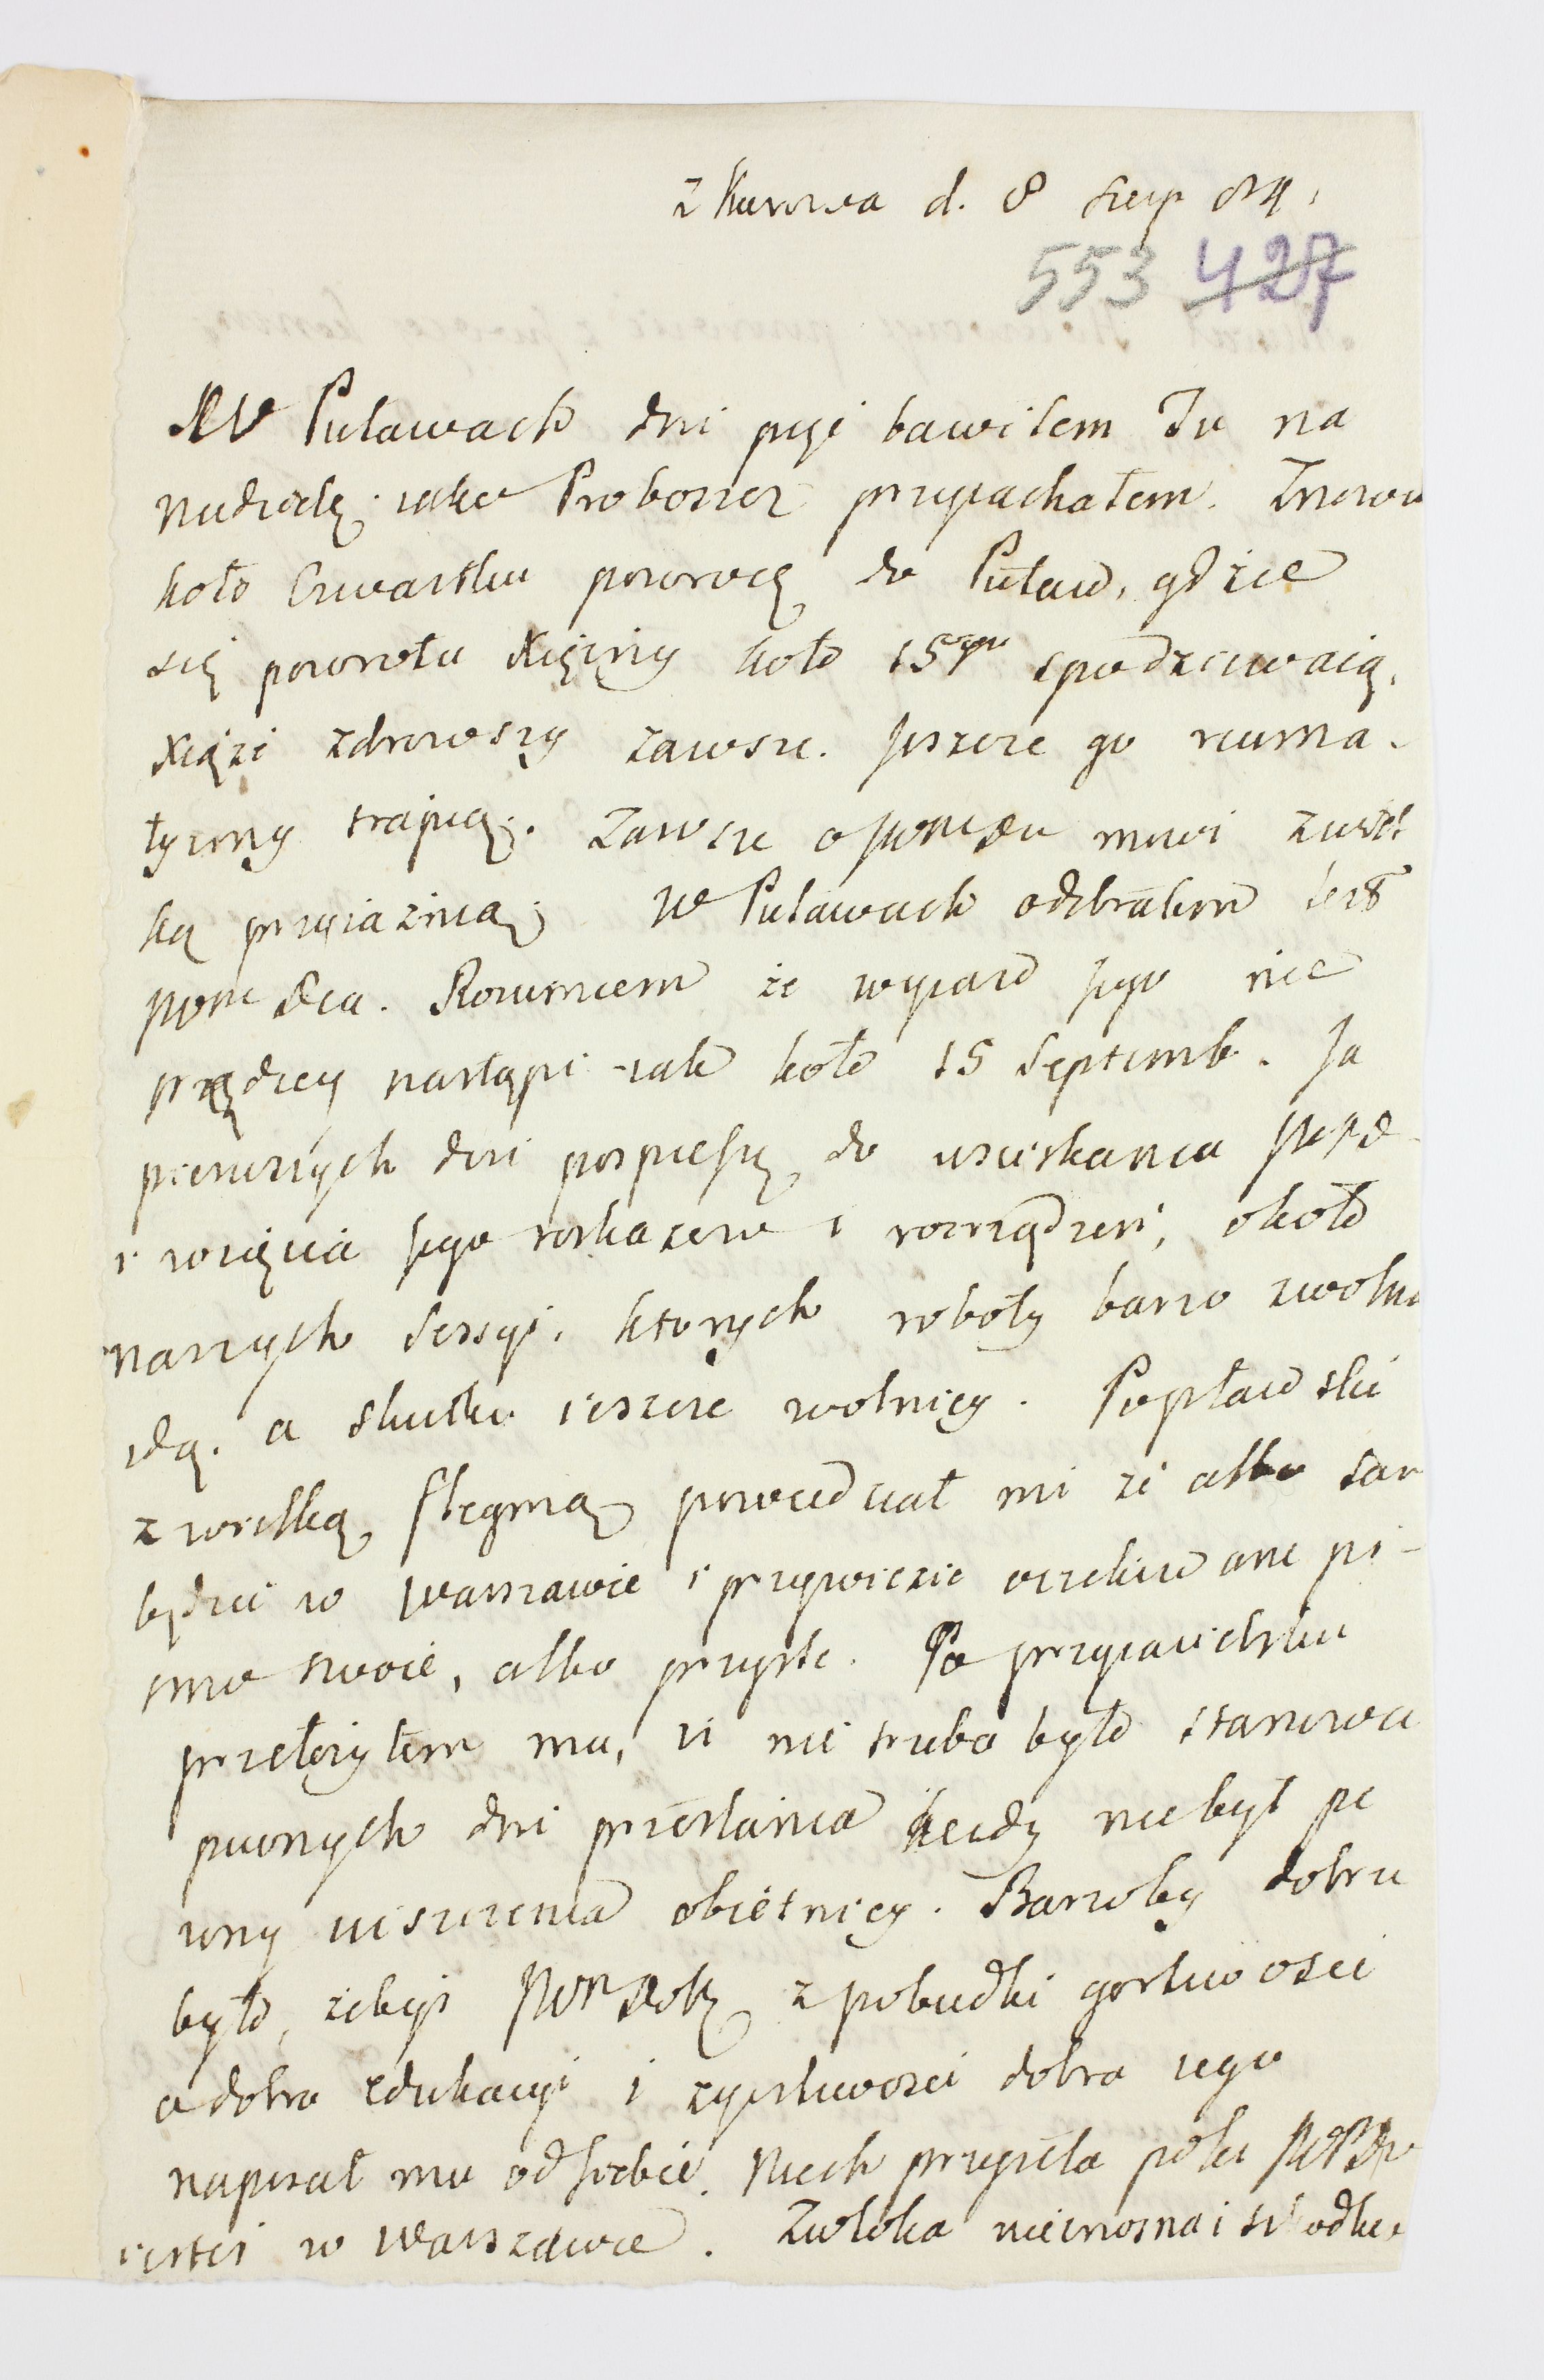 z Kurowa d. 8 Sierp 84.
553 427
W Puławach dni pięć bawiłem Tu na
niedzielę iako Proboszcz przyiachałem. Znowu
koło Czwartku powrocę do Puław, gdzie
się powrotu Xiężny koło 15go spodziewaią.
Xiąże zdrowszy zawsze. Jeszcze go reuma-
tyzmy trapią. Zawsze o mowi z wiel
ką przyiaźnią. W Puławach odebrałem list
Rozumiem że wyiazd Jego nie
prędzey nastąpi iak koło 15 Septemb. Ja
pierwszych dni pospieszę do uściskania
i wzięcia Jego roskazow i rozrządzeń, około
naszych Sessyi, ktorych roboty barzo zwolna
idą. a skutki ieszcze wolniey. Popławski
z wielką flegmą powiedział mi że albo sam
będzie w Warszawie i przywiezie oczekiwane pi-
smo swoie, albo przyśle. Po przyiacielsku
przełożyłem mu, iż nie trzeba było stanowić
pewnych dni przesłania kiedy nie był pe
wny uiszczenia obietnicy. Barzoby dobrze
było, żebyś z pobudki gorliwości
o dobro edukacyi i życzliwości dobra iego
napisał mu od siebie. Niech przyseła poki
iesteś w Warszawie. Zwłoka nieznośna i szkodliwa